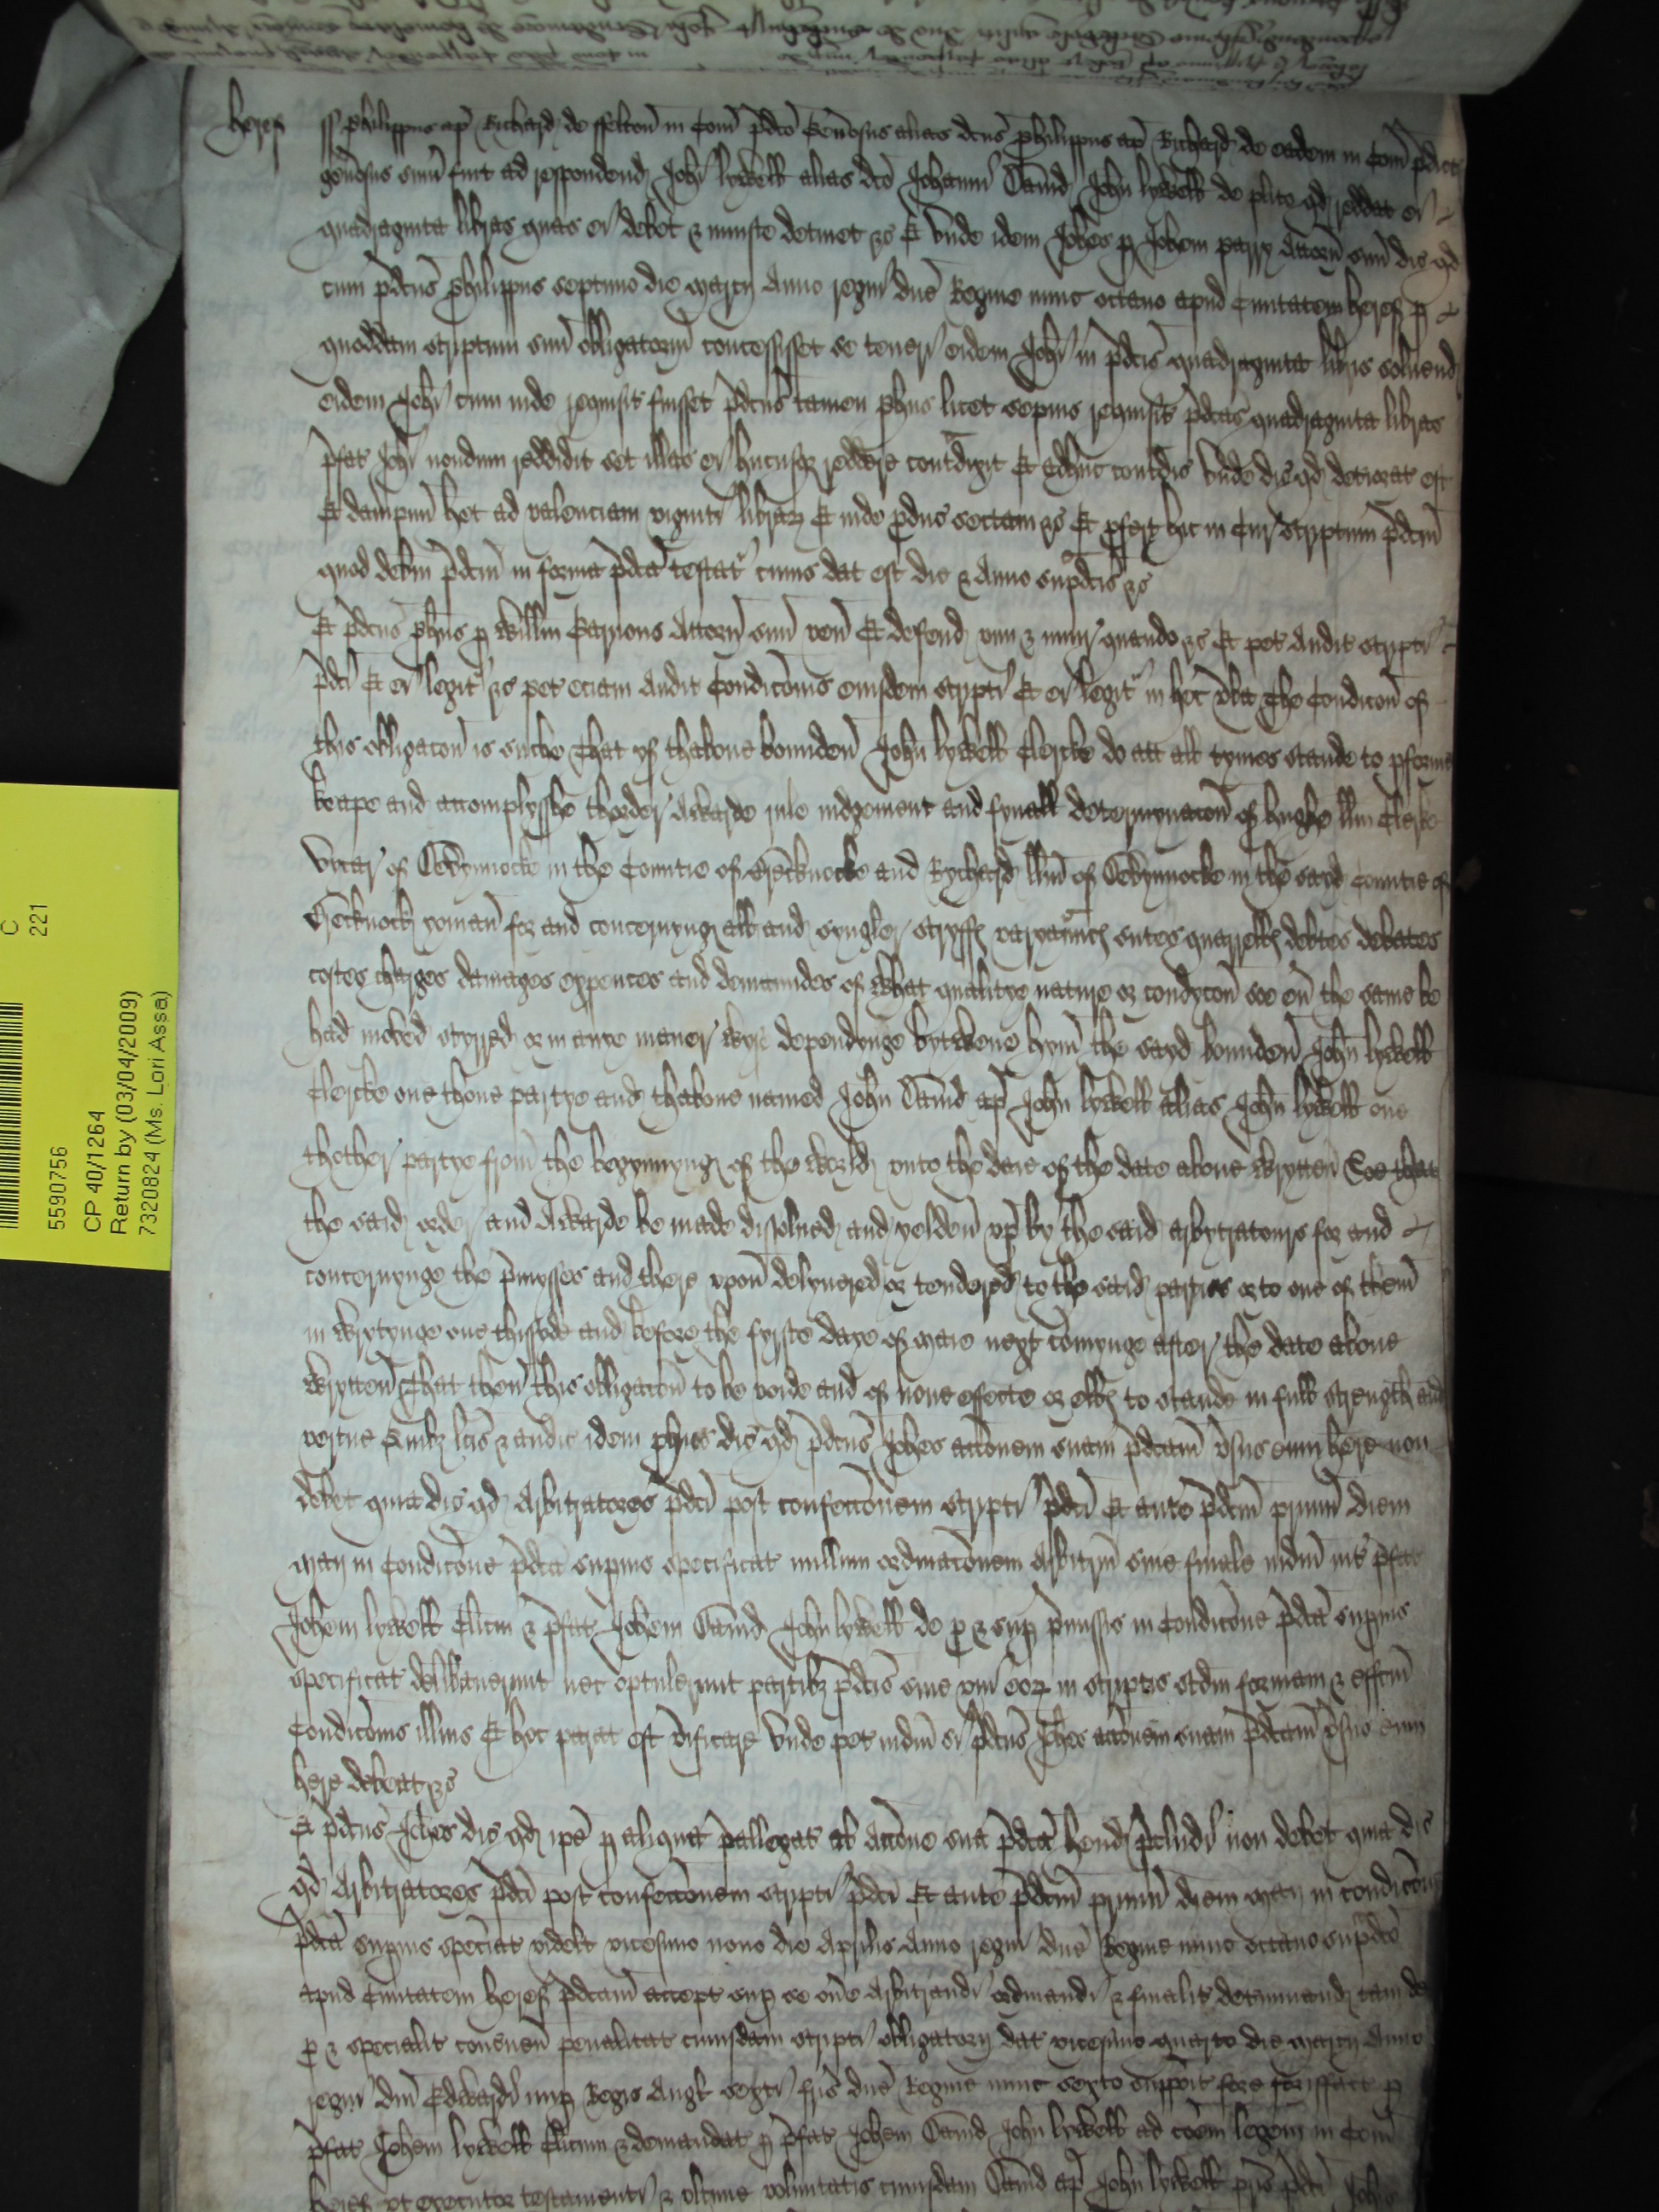 heref ss Philippus ap Richard de ffelton in Com pdco Genosus alias dcus Philippus ap Richard de eadem in Com pdict
genosus sum fuit ad respondend Johi lywell alias dco Johanni Dauid John lywell de plito qd reddat ei
quadraginta libras quas ei debet & iniuste detinet &c Et unde idem Johes p Johem parry Attorn suu dic qd
cum pdcus Philippus septimo die marcij Anno regni dne Regine nunc octauo apud Ciuitatem heref p
quoddam scriptum suu obligatoriu concessisset se teneri eidem Johi in pdcis quadragint libris soluend
eidem Johi cum inde requisit fuisset pdcus tamen Phus licet sepius requisit pdcas quadraginta libras
pfat Johi nondum reddidit set illas ei hucusq reddere contdixit Et adhuc contdic unde dic qd deteriorat est
Et dampnu het ad valenciam viginti librar Et inde pduc sectam &c Et pfert hic in Cur scriptum pdcm
quod debm pdcm in forma pdca testat cuius dat est die & Anno supdcis &c
Et pdcus Phus p Willm Garnons Attorn suu ven Et defend vim & iniur quando &c Et pet audit scripti
pdci Et ei legit &c pet eciam audit Condicionis eiusdem scripti Et ei legit in hec vba The Condicon of
this obligacon is suche That yf thaboue bounden John lywell Clercke do att all tymes stande to pforme
keape and accomplysshe thorder Awarde rule iudgement and fynall determynacon of hughe llm Clerke
vicar of Devynnocke in the Countie of Brecknocke and Rychard llm of Devynnocke in the sayd Countie of
Brecknock yoman for and concernyng all and syngler stryffes varyaunces sutes quarrells debtes debates
costes charges damages expences and demaundes of what qualitye nature or condycon soe eu the same be
had moved styrred or in anye maner wyse dependynge bytwene hym the sayd bounden John lywell
Clercke one thone partye and thaboue named John Dauid ap John lywell alias John lywell one
thother partye from the begynnyng of the world unto the daie of the date aboue wrytten Soe that
the said order and Awarde be made dissolued and yelden up by the said arbytratours for and
concernynge the pmysses and there upon delyuered or tendered to the said parties or to one of them
in wrytynge one thissyde and before the fyrste daye of maie next comynge after the date aboue
wrytten That then this obligacon to be voide and of none effecte or ells to stande in full strength and
vertue Quibz lcis & audit idem Phus dic qd pdcus Johes accionem suam pdcam vsus eum here non
debet quia dic qd Arbitratores pdci post confeccionem scripti pdci Et ante pdcm primu diem
maij in Condicione pdca supius specificat nullum ordinacionem Arbitriu siue finale iudm int pfat
Johem lywell Clicm & pfat Johem Dauid John lywell de p & sup pmissis in Condicione pdca supius
specificat delibauerunt nec optulerunt partibz pdcis siue uni eor in scriptis scdm formam & effcm
Condicionis illius Et hoc parat est vificare unde pet iudm si pdcus Johes accionem suam pdcam vsus eum
here debeat &c
Et pdcus Johes dic qd ipe p aliqua pallegat ab accione sua pdca hend pcludi non debet quia dic
qd Arbitratores pdci post confeccionem scripti pdci Et ante pdcm primu diem maij in condicione
pdca supius speciat videlt vicesimo nono die Aprilis Anno regni dne Regine nunc octauo supdco
apud Ciuitatem heref pdcam accept sup se one Arbitrandi ordinandi & finalit detminand tam de
p & specialit concnen penalitat cuiusdam scripti obligatorij dat vicesimo quarto die marcij Anno
regni dni Edwardi nup Regis Angl sexti fris dne Regine nunc sexto supposit fore forisfact p
pfat Johem lywell Clicum & demandat p pfat Johem Dauid John lywell ad coem legem in Com
heref ut executor testamenti & ultime voluntatis cuiusdam Dauid ap John lywell pris pdci Johis
5590756
CP 40/1264
Return by (03/04/2009)
7320824 (Ms. Lori Assa)
C
221